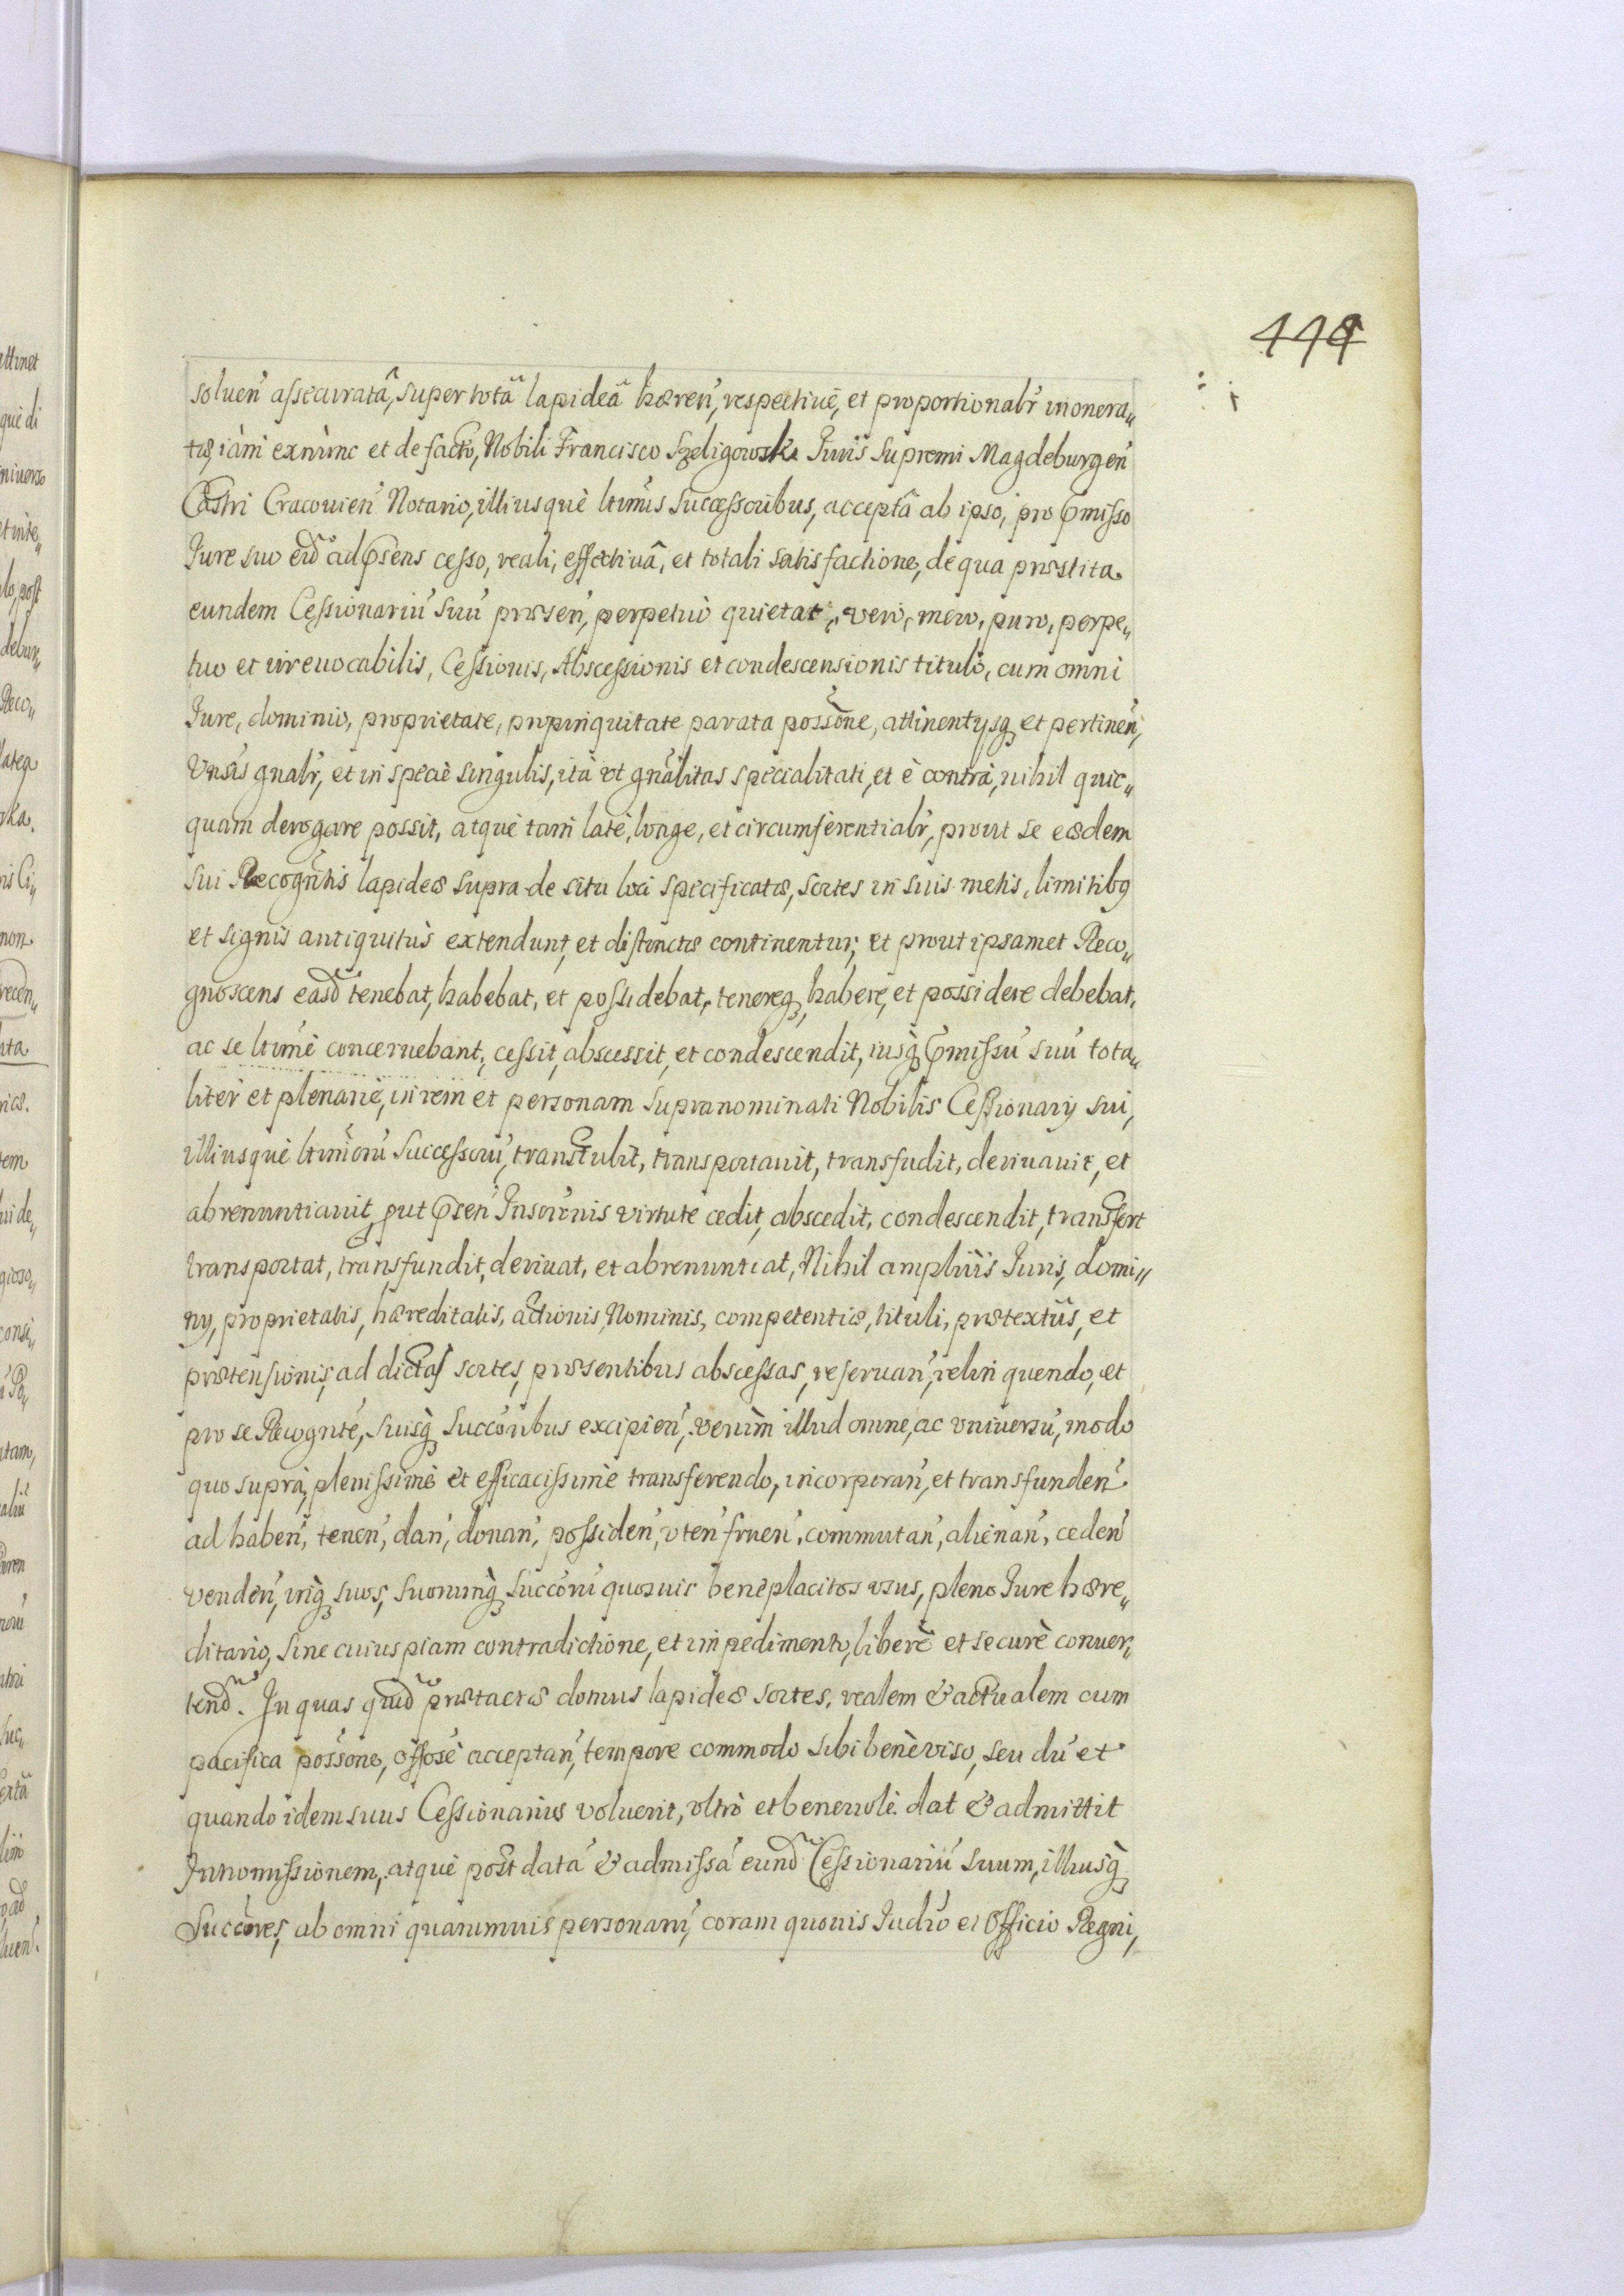 444
soluen̄ assecuratâ, super totã lapideã hæren̄, respectiuè, et proportionalr̄ inonera„
tæ, iàm exnùnc et de facto, Nobili Francisco Szeligowski Iuris Supremi Magdeburgen̄
Castri Cracouien̄ Notario, illiusquè ltimis Successoribus, acceptâ ab ipso, pro p̄misso
Iure suo eid̃ ad p̄sens cesso, reali, effectiuâ, et totali satisfactione, de qua præstita
eundem Cessionariũ suũ præsen̄, perpetuò quietat, vero, mero, puro, perpe„
tuo et irreuocabilis, Cessionis, Abscessionis et condescensionis titulò, cum omni
Iure, dominio, proprietate, propinquitate parata possõne, attinentijsq3 et pertinen̄,
Vnsis gnalr̄, et in speciè singulis, ità vt gnãlitas specialitati, et è contrà, nihil quic„
quam derogare possit, atquè tam latè, longe, et circumferentialr̄, prout se eædem
sui Recogñtis lapideæ supra de situ loci specificatæ, sortes in suis metis, limitibq
et signis antiquitùs extendunt, et distinctæ continentur, et prout ipsamet Reco„
gnoscens easd̃ tenebat, habebat, et possidebat, tenereq3, habere, et possidere debebat,
ac se ltimè concernebant, cessit, abscessit, et condescendit, iusq3 p̄missũ suũ tota„
liter et plenariè, in rem et personam supranominati Nobilis Cessionarij sui,
illiusquè ltimorũ Successorũ, transtulit, transportauit, transfudit, deriuauit, et
abrenuntiauit, put p̄sen̄ Inscrõnis virtute cedit, abscedit, condescendit, transfert
transportat, transfundit, deriuat, et abrenuntiat, Nihil ampliùs Iuris, domi„
nij, proprietatis, hæreditatis, actionis, Nominis, competentiæ, tituli, prætextûs, et
prætensionis, ad dictas sortes, præsentibus abscessas, reseruan̄, relinquendo, et
pro se Recognte, suisq3 Succõribus excipien̄, verùm illud omne, ac vniuersũ, modo
quo suprà, plenissimè et efficacissimè transferendo, incorporan̄, et transfunden̄
ad haben̄, tenen̄, dan̄, donan̄, possiden̄, vten̄ fruen̄, commutan̄, alienan̄, ceden̄
venden̄, inq3 suos, suorumq3 Succõrũ quosuis beneplacitos vsus, pleno Iure hære„
ditario, sine cuiuspiam contradictione, et impedimento, liberè et securè conuer„
tend̃. In quas quid̃ prætactas domus lapideæ sortes, realem & actualem cum
pacifica possõne, offõse acceptan̄, tempore commodo sibi benè viso, seu dũ et
quando idem suus Cessionarius voluerit, vltrò et beneuolè dat & admittit
Intromissionem, atquè post datã & admissã eund̃ Cessionariũ suum, illiusq3
Succõres, ab omni quarumuis personarũ, coram quouis Iudĩo et Officio Regni,